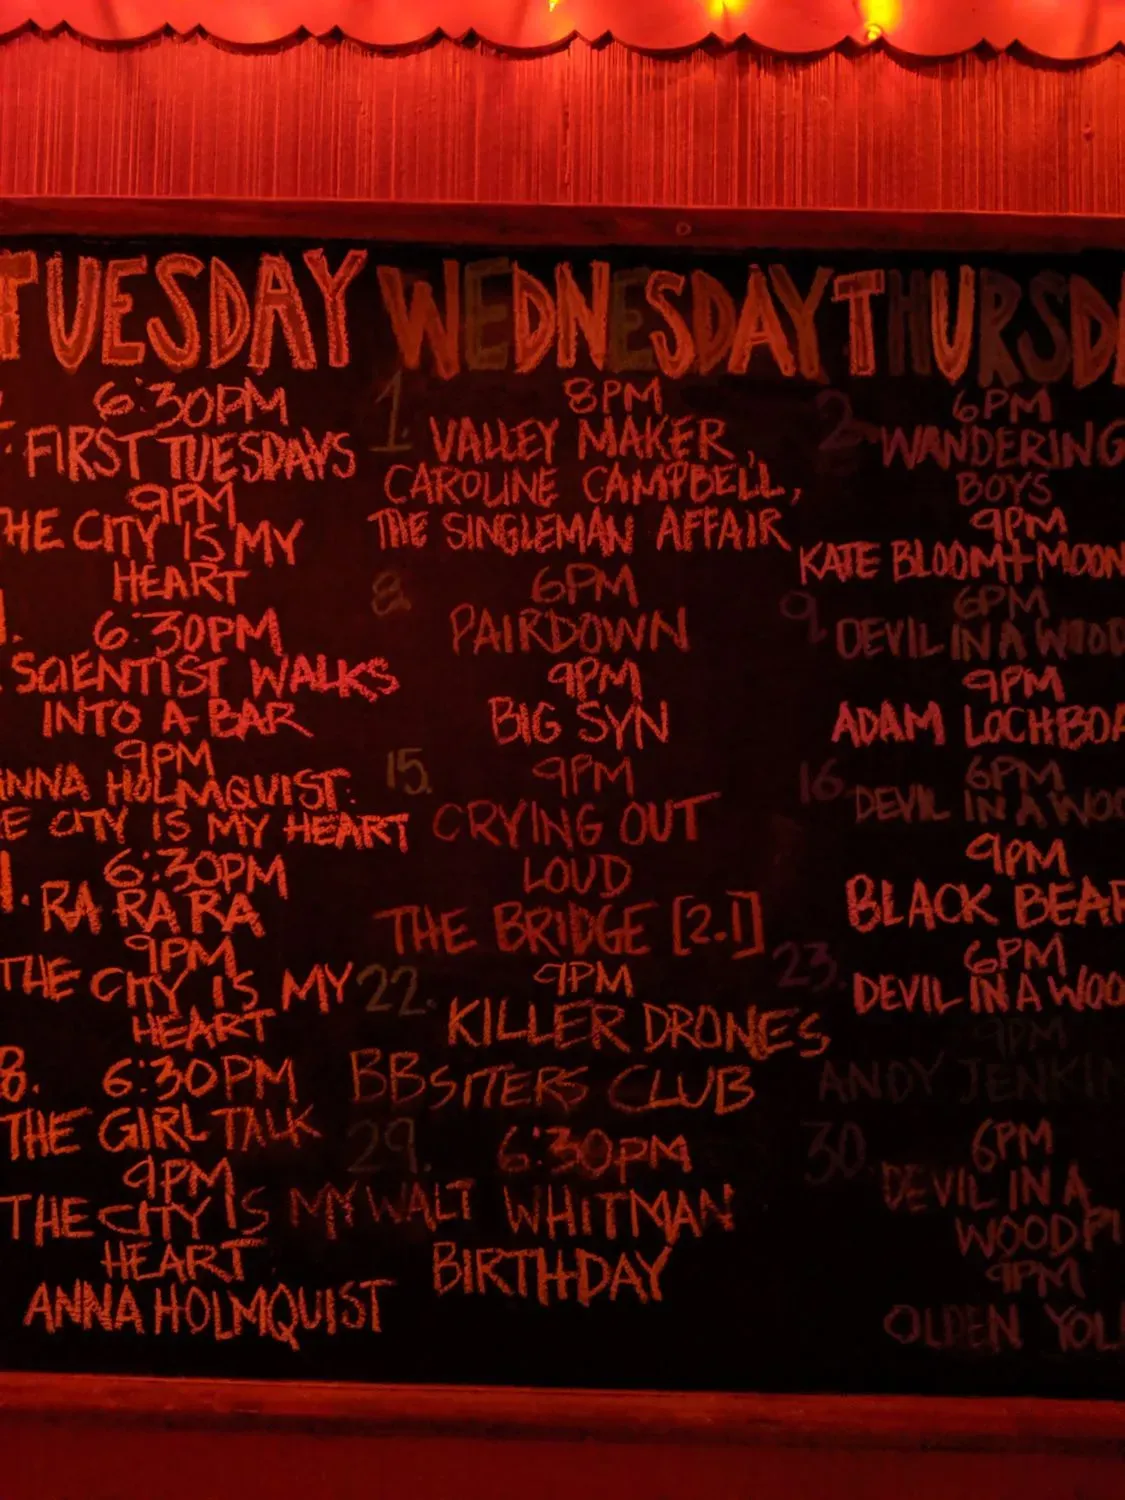 TUESDAY
6:30PM
FIRST TUESDAYS
9PM
THE CITY IS MY
HEART
6:30PM
SCIENTIST WALKS
INTO A BAR
9PM
ANNA HOLMQUIST:
CITY IS MY HEART
6:30PM
RA RA RA
9PM
THE CITY IS MY
HEART
8.
6:30PM
THE GIRL TALK
9PM
THE CITY IS MY
HEART
ANNA HOLMQUIST
WEDNESDAY
1.
8PM
VALLEY MAKER,
CAROLINE CAMPBELL,
THE SINGLEMAN AFFAIR
8.
6PM
PAIRDOWN
9PM
BIG SYN
15.
9PM
CRYING OUT
LOUD
THE BRIDGE [2.1]
22.
9PM
KILLER DRONES
BBSITERS CLUB
29.
6:30PM
WALT WHITMAN
BIRTHDAY
THURSD
2.
6PM
WANDERING
BOYS
9PM
KATE BLOOM+MOON
9.
6PM
DEVIL IN A WOOD
9PM
ADAM LOCHBOA
16.
6PM
DEVIL IN A WOO
9PM
BLACK BEAR
23.
6PM
DEVIL IN A WOO
9PM
ANDY JENKIN
30.
6PM
DEVIL IN A
WOODPI
9PM
OLDEN YOL